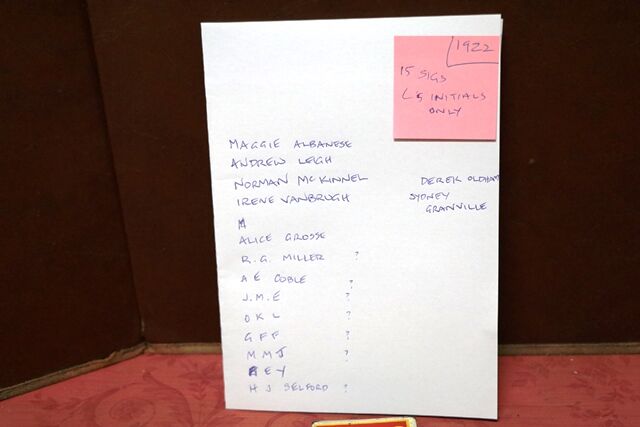 1922
15 SIGS
L's INITIALS
ONLY
MAGGIE ALBANESE
ANDREW LEIGH
NORMAN MCKINNEL
IRENE VANBRUGH
DEREK OLDHAM
SYDNEY
GRANVILLE
ALICE GROSSE
R.G. MILLER ?
A E COBLE ?
J.M.E ?
O K L ?
G F F ?
M M J ?
E Y
H J SELFORD ?